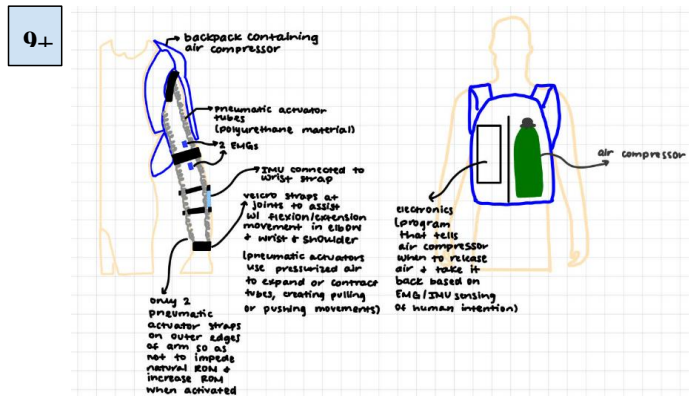 9+
backpack containing
air compressor
pneumatic actuator
tubes
(polyurethane material)
2 EMGs
IMU connected to
wrist strap
velcro straps at
joints to assist
w/ flexion/extension
movement in elbow
+ wrist + shoulder
(pneumatic actuators
use pressurized air
to expand or contract
tubes, creating pulling
or pushing movements)
only 2
pneumatic
actuator straps
on outer edges
of arm so as
not to impede
natural ROM +
increase ROM
when activated
air compressor
electronics
(program
that tells
air compressor
when to release
air + take it
back based on
EMG/IMU sensing
of human intention)